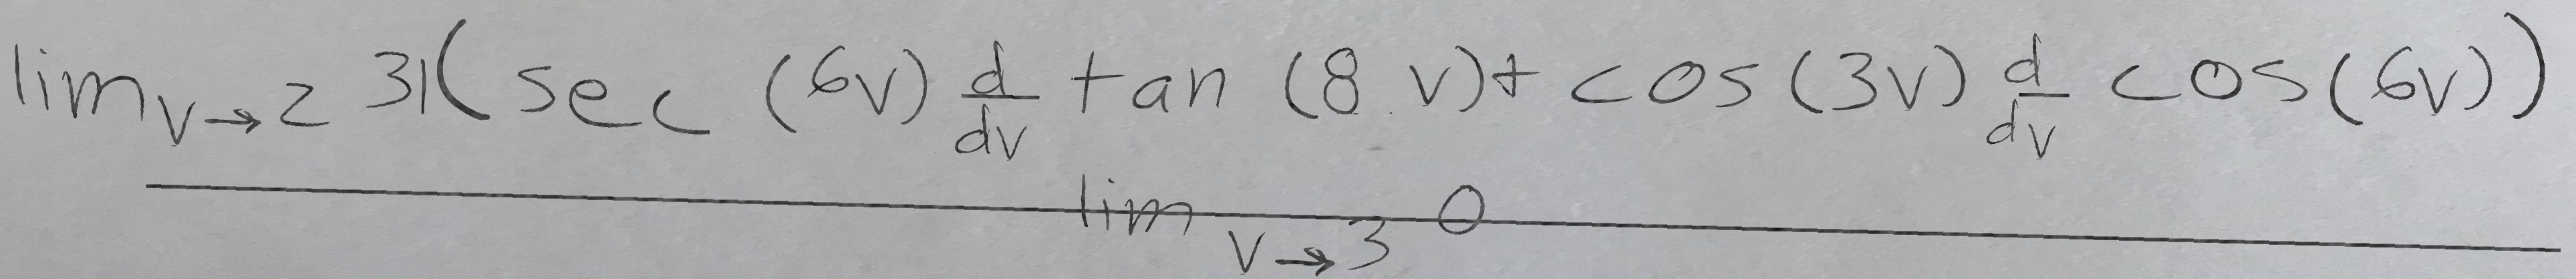 lim v→2 31(sec (6v) d/dv tan (8 v) + cos(3v) d/dv cos(6v))
lim v→3 0